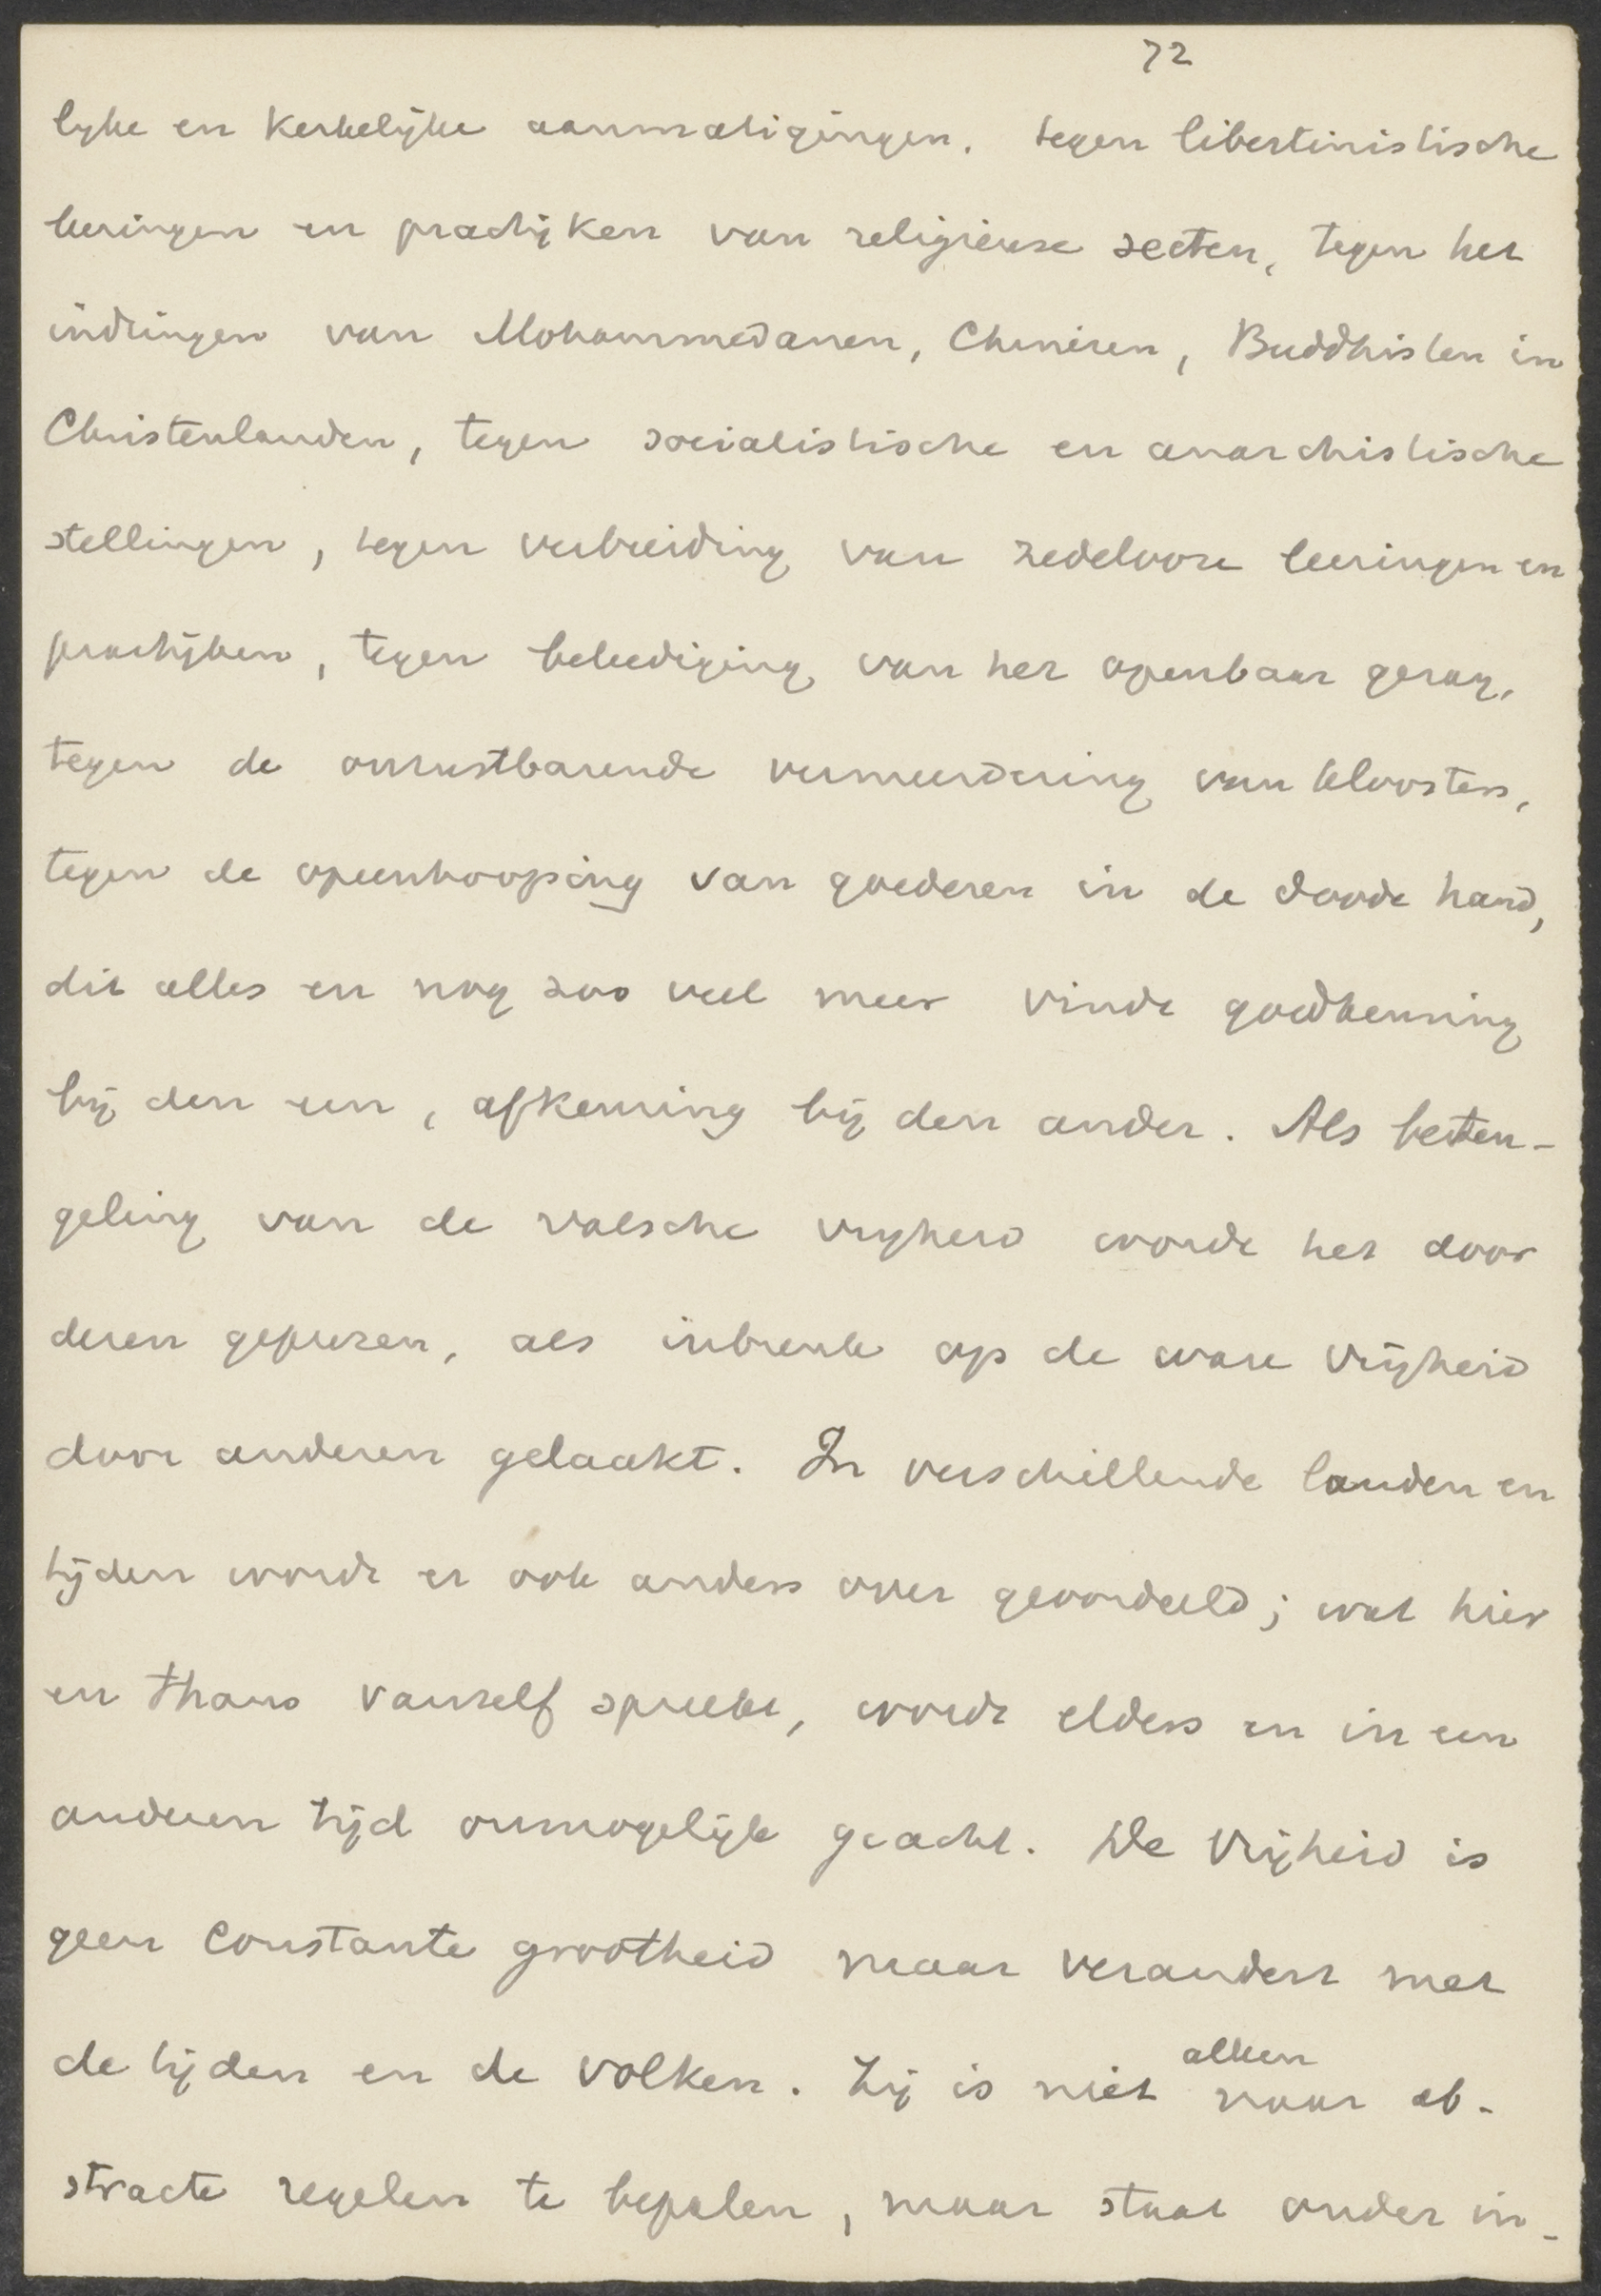 72
lyke en kerkelijke aanmatigingen, tegen libertinistische
leeringen en practijken van religieuse secten, tegen het
indringen van Mohammedanen, Chineezen, Buddhisten in
Christenlanden, tegen socialistische en anarchistische
stellingen, tegen verbreiding van zedeloose leeringen en
practijken, tegen beleediging van het openbaar gezag,
tegen de onrustbarende vermeerdering van kloosters,
tegen de opeenhooping van goederen in de doode hand,
dit alles en nog zoo veel meer vindt goedkeuring
bij den een, afkeuring bij den ander. Als beten-
geling van de valsche vryheid wordt het door
dezen geprezen, als inbreuk op de ware vrijheid
door anderen gelaakt. In verschillende landen en
tijden wordt er ook anders over geoordeeld; wat hier
en thans vanzelf spreekt, wordt elders en in een
anderen tijd onmogelijk geacht. De vrijheid is
geen constante grootheid maar verandert met
de tijden en de volken. Zij is niet alleen naar ab-
stracte regelen te bepalen, maar staat onder in-